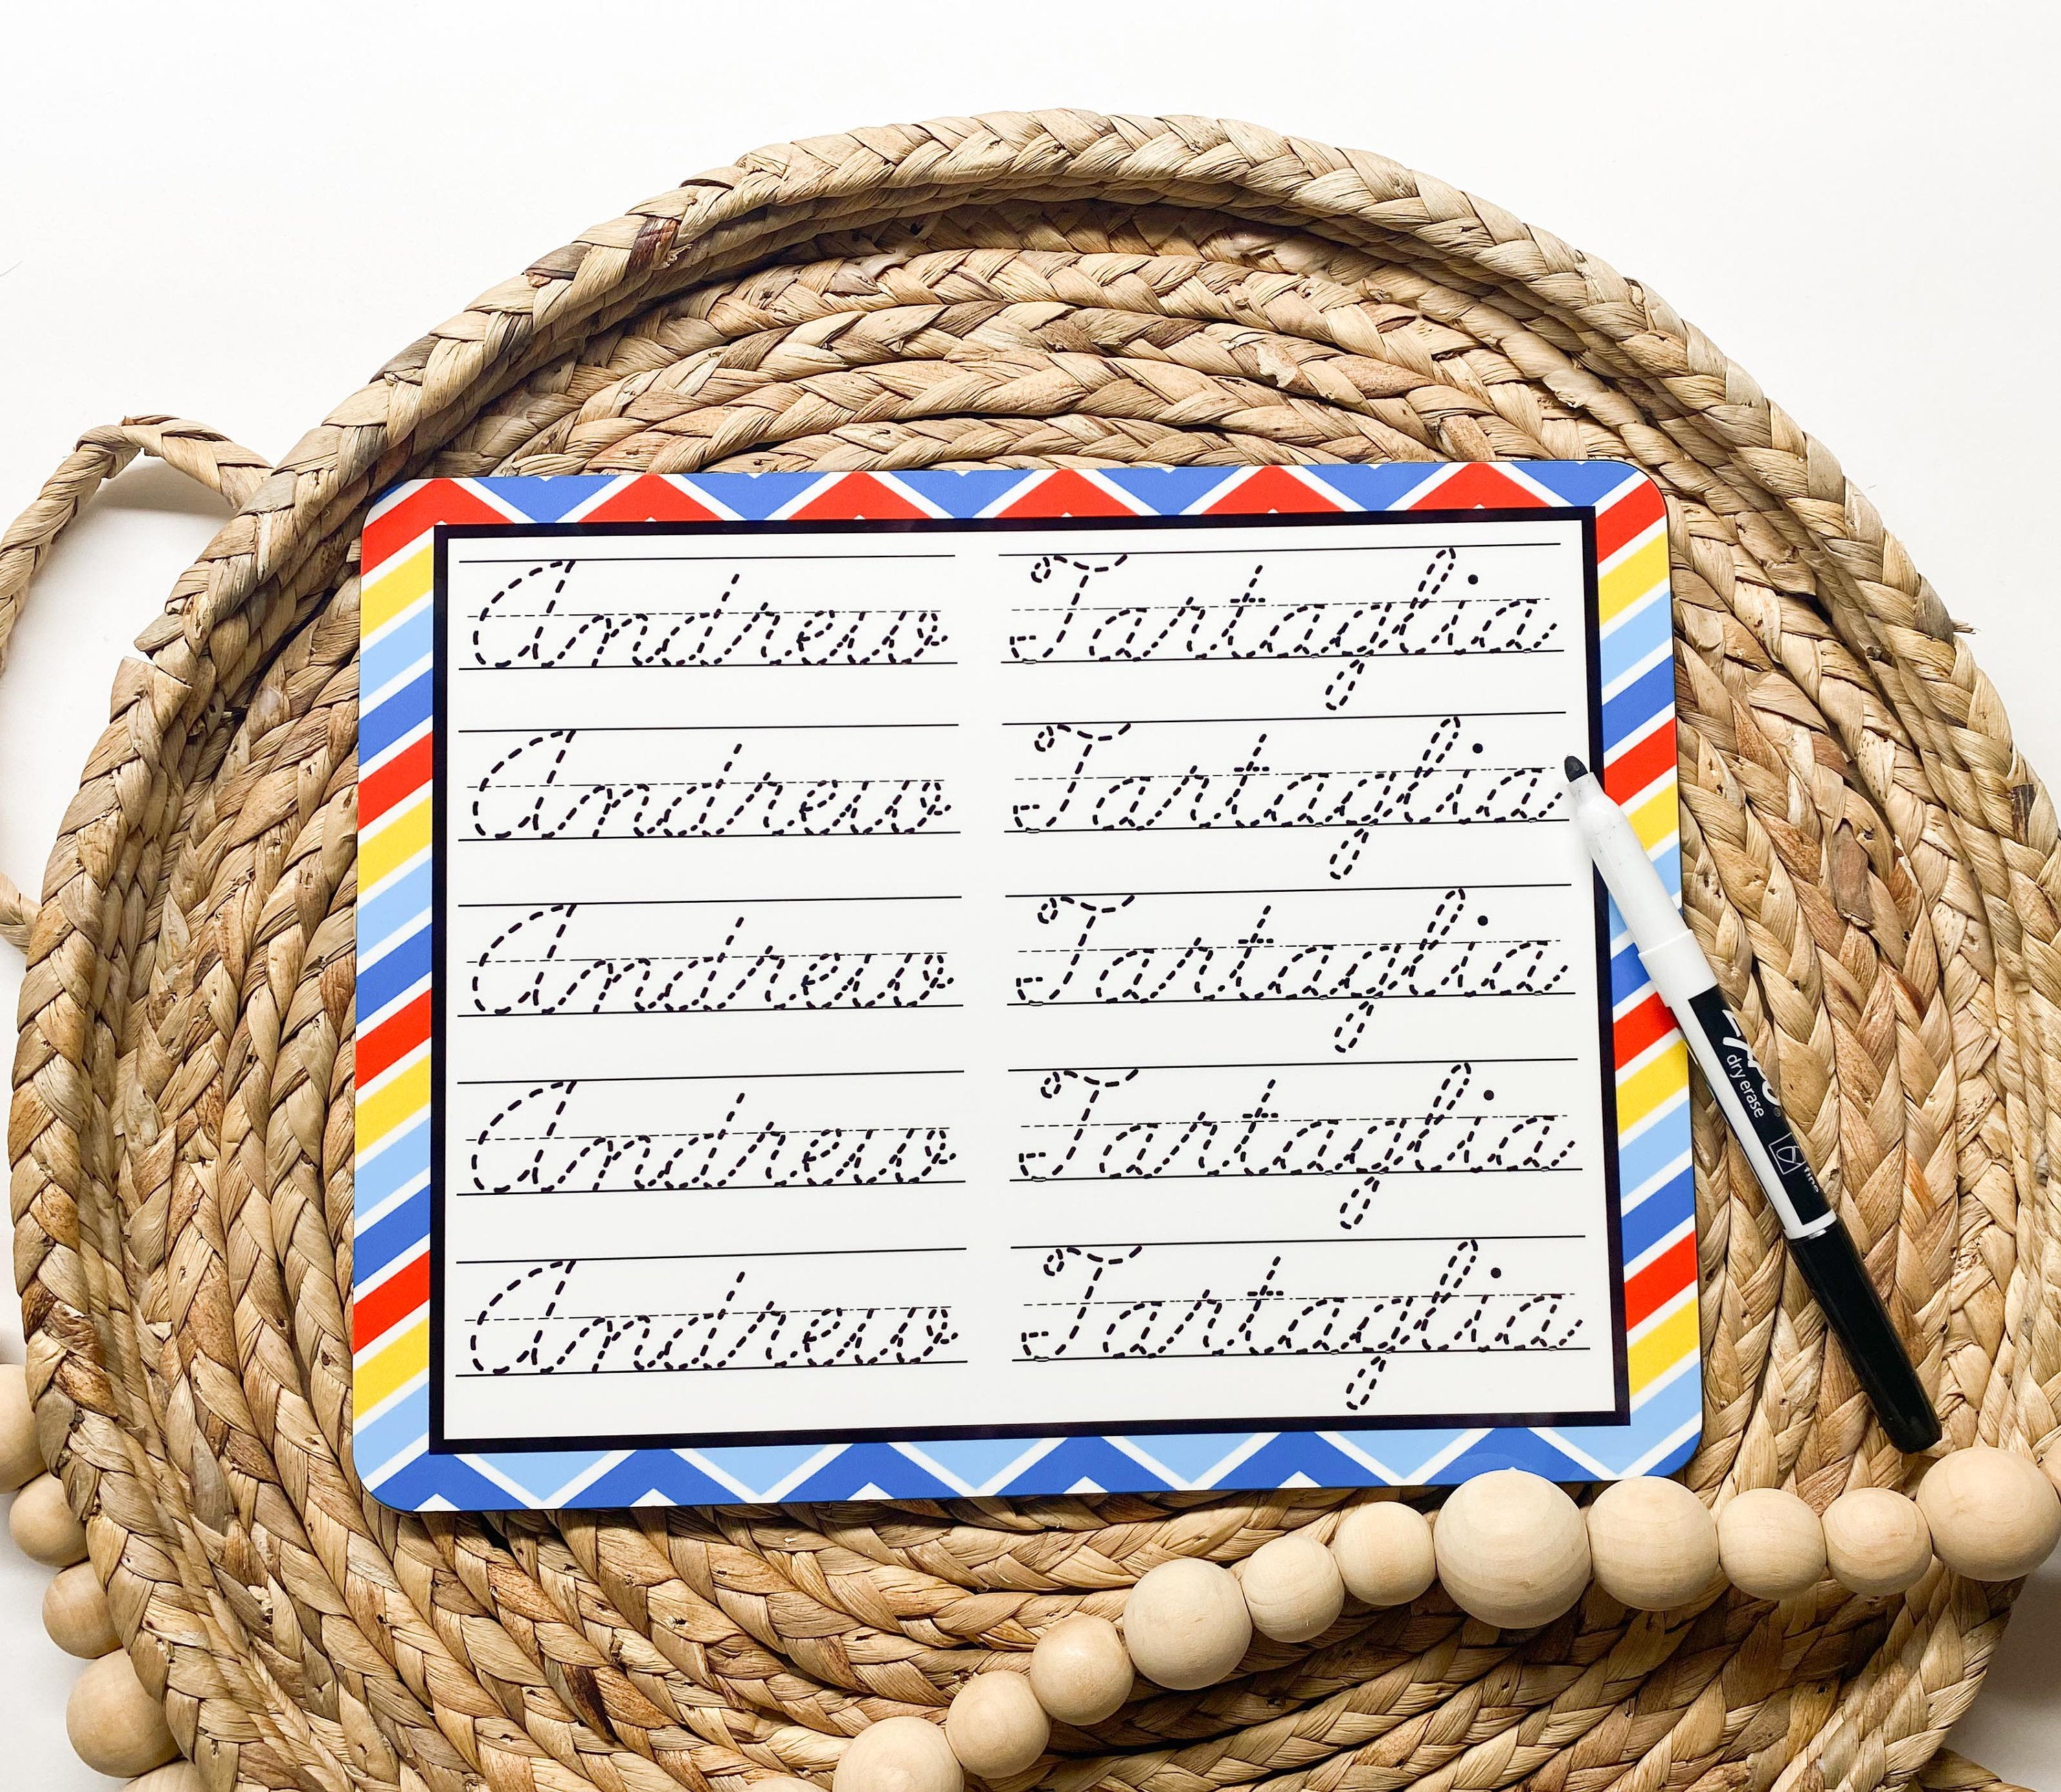 Andrew Tartaglia
Andrew Tartaglia
Andrew Tartaglia
Andrew Tartaglia
Andrew Tartaglia
EXPO®
dry erase
fine